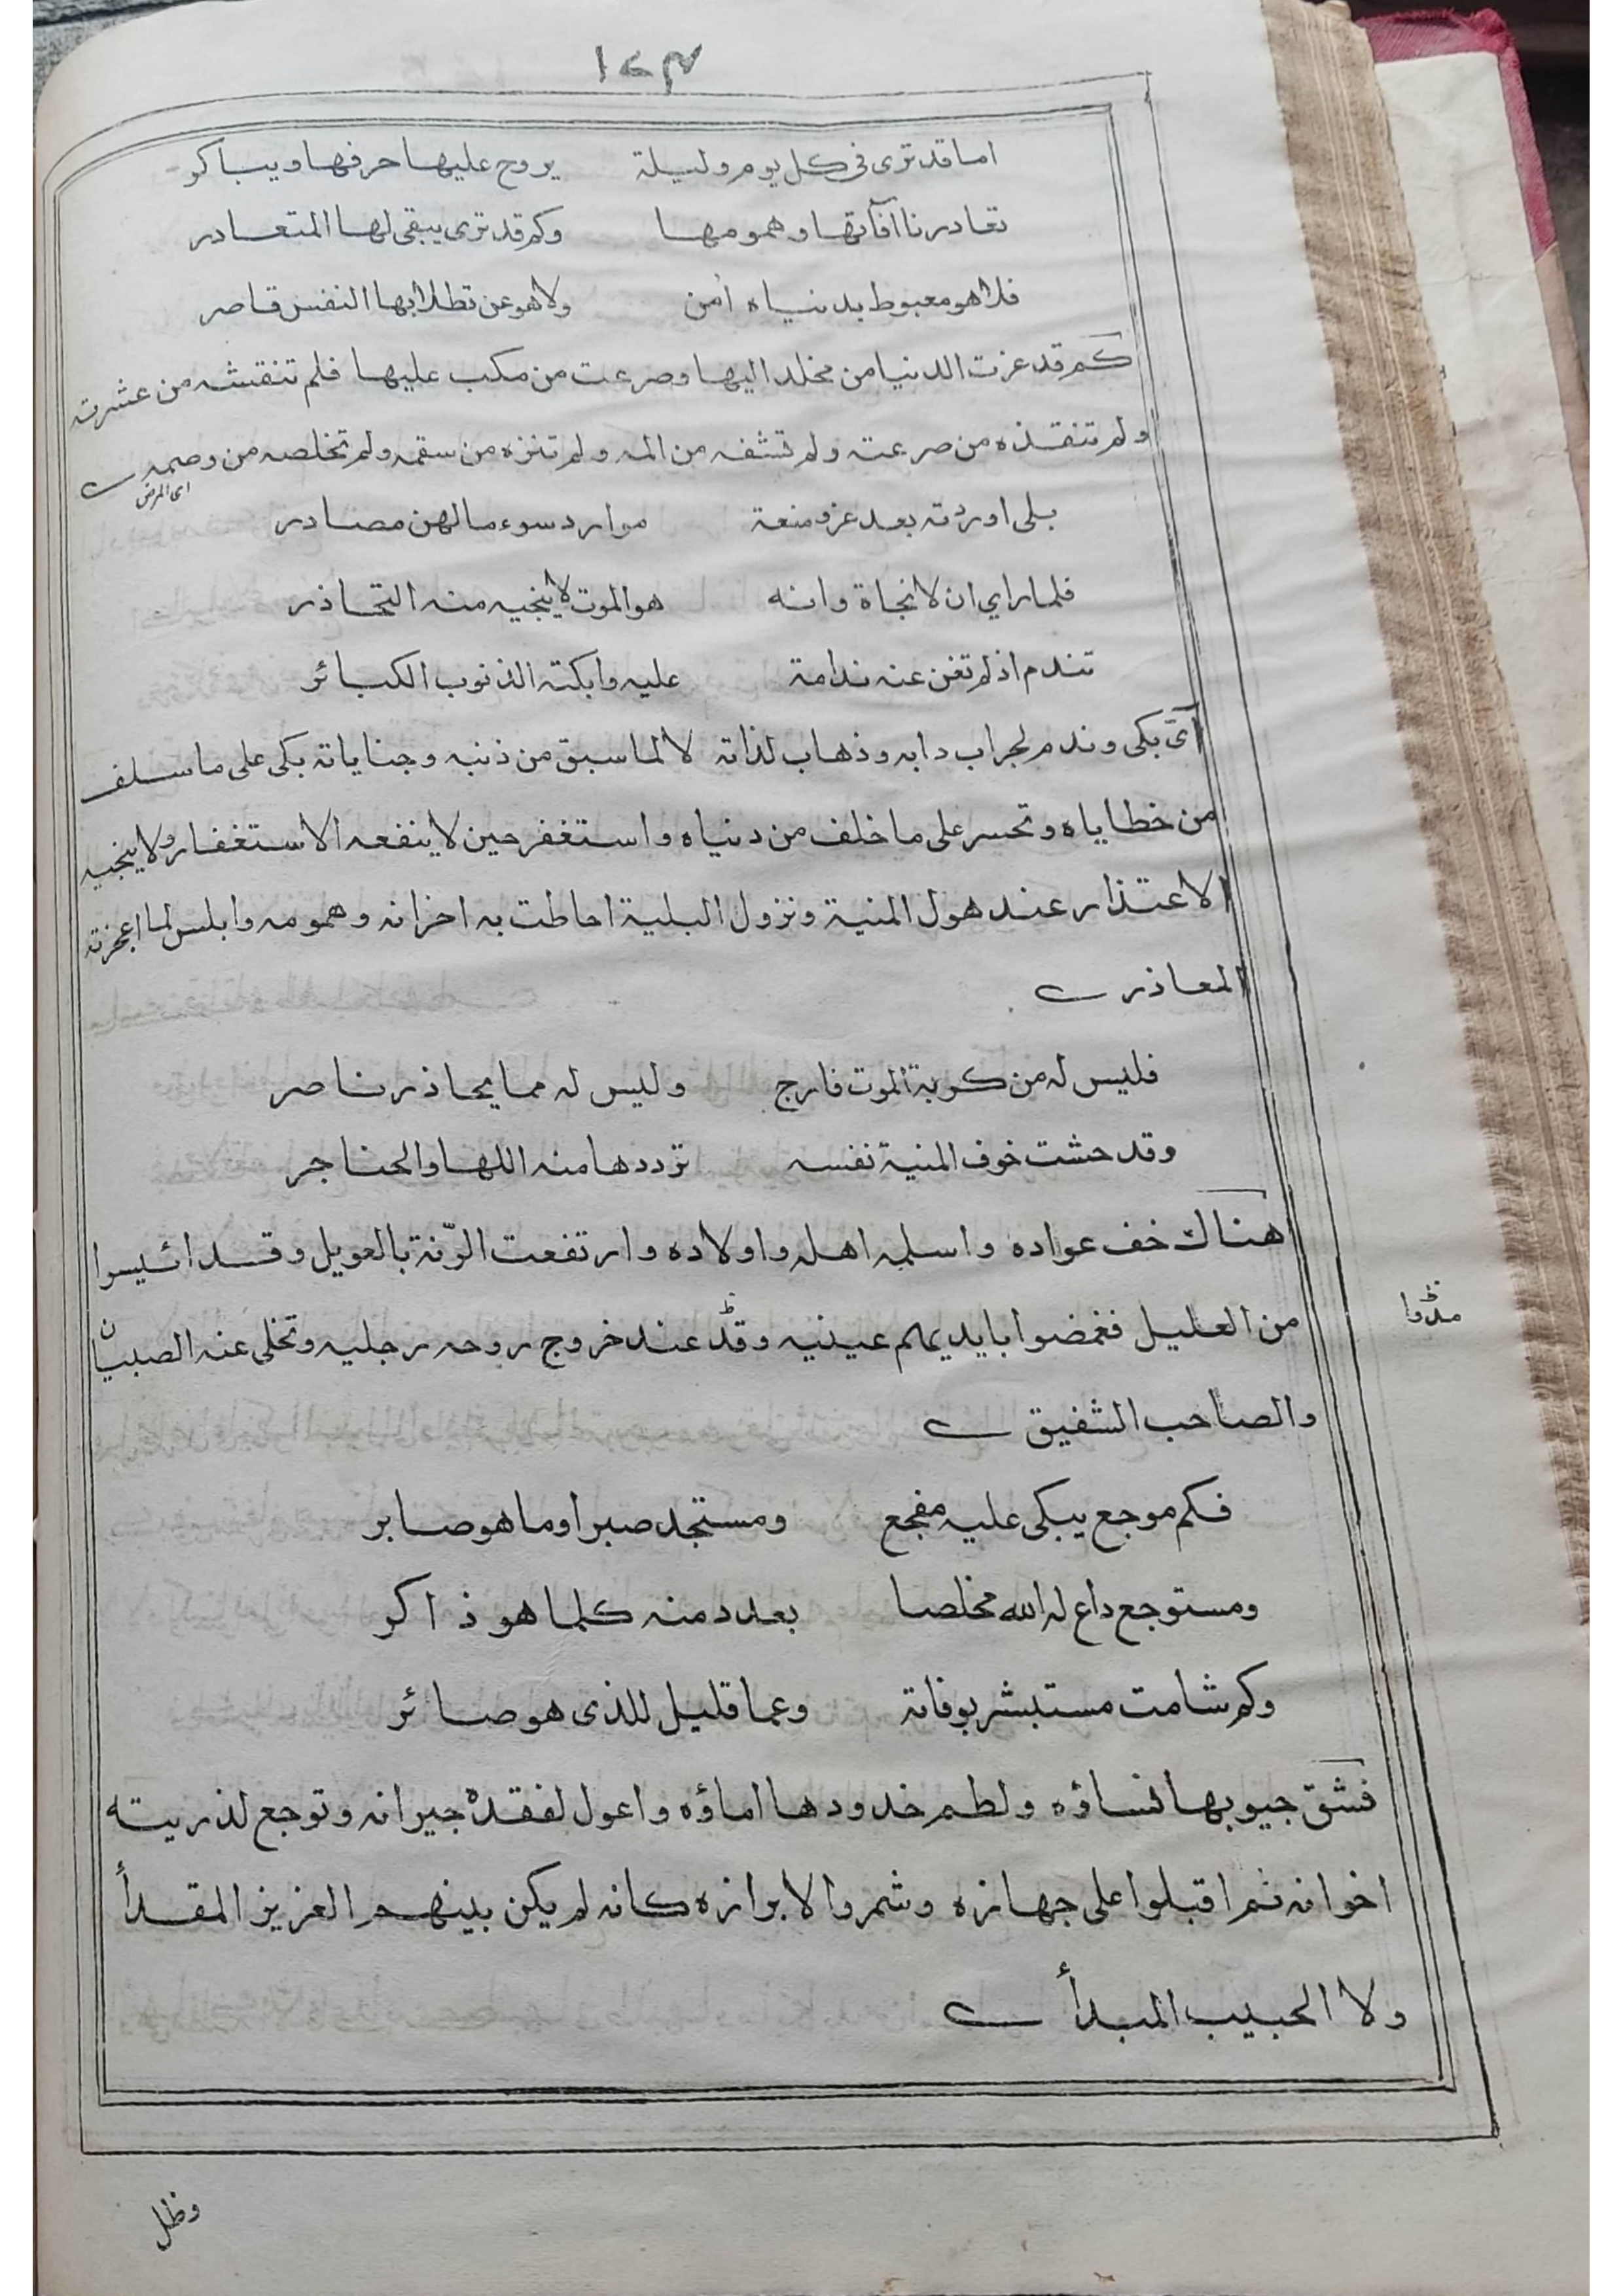 ١٧٤
اما قد ترى فى كل يوم وليلة يروح عليها حرفها ويباكر
تغادرنا آفآتها وهمومها وكم قد ترى يبقى لها المتغادر
فلا هو مغبوط بدنياه امن ولا هو عن تطلابها النفس قاصر
كم قد عزت الدنيا من مخلد اليها وصرعت من مكب عليها فلم تنقشه من عشرته
ولم تنقذه من صرعته ولم تشفه من المه ولم تنزه من سقمه ولم تخلصه من وصمه
اى المرض
بلى اوردته بعد عز ومنعة موارد سوء مالهن مصادر
فلما راي ان لا نجاة وانه هو الموت لا ينجيه منه التحاذر
تندم اذ لم تغن عنه ندامة عليه وابكته الذنوب الكبائر
آىّ بكى وندم لجراب دابه وذهاب لذاته لا لما سبق من ذنبه وجناياته بكى على ما سلف
من خطاياه وتحسر على ما خلف من دنياه واستغفر حين لا ينفعه الاستغفار ولا ينجيه
الاعتذار عند هول المنية ونزول البلية احاطت به احزانه وهمومه وابلس لما اعجزته
المعاذر
فليس له من كربة الموت فارج وليس له مما يحاذر ناصر
وقد حشت خوف المنية نفسه ترددها منه اللها والحناجر
هناك خف عواده واسلمه اهله واولاده وارتفعت الرّنة بالعويل وقد ائيسوا
من العليل فغمضوا بايديهم عينيه وقدّ عند خروج روحه رجليه وتخلى عنه الصبيان
مدّوا
والصاحب الشفيق
فكم موجع يبكى عليه مفجع ومستجد صبرا وما هو صابر
ومستوجع داع له الله مخلصا بعدد منه كلما هو ذاكر
وكم شامت مستبشر بوفاته وعما قليل للذى هو صائر
فشق جيوبها نساؤه ولطم خدودها اماؤه واعول لفقده جيرانه وتوجع لذريته
اخوانه ثم اقبلوا على جهازه وشمروا لابرازه كانه لم يكن بينهم العزيز المقدأ
ولا الحبيب المبدأ
وظل